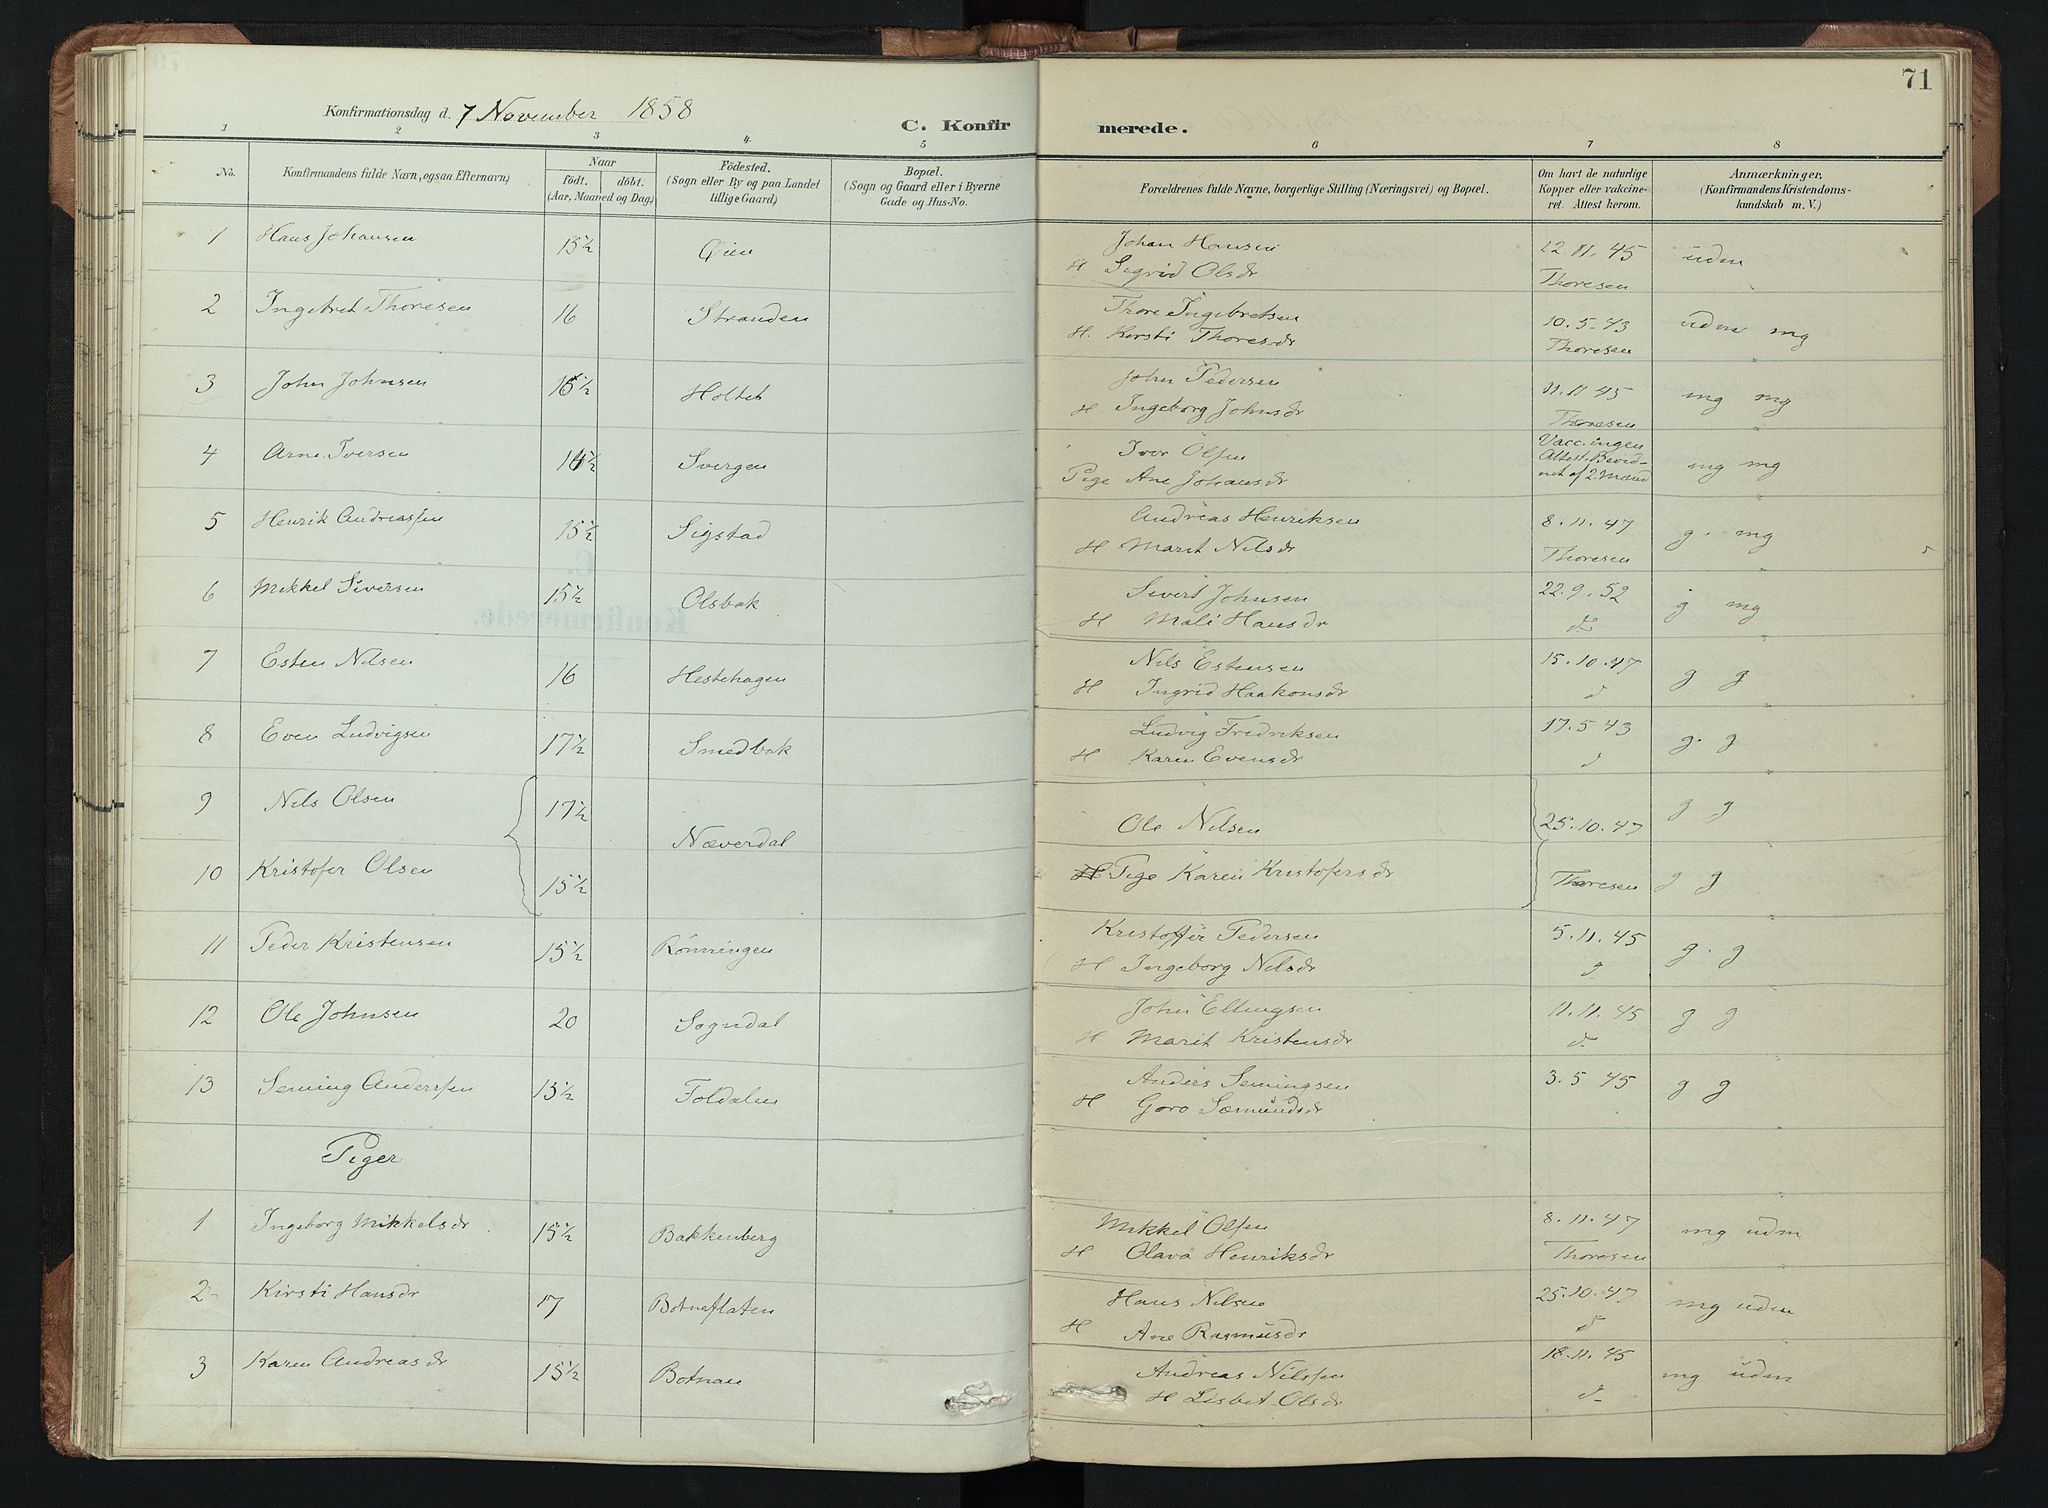 71
Konfirmationsdag d. 7 November 1858
C. Konfirmerede.
1 2 3 4 5 6 7 8
No.
Konfirmandens fulde Navn, ogsaa Efternavn)
Naar
født. døbt.
(Aar, Maaned og Dag.)
Födested.
(Sogn eller By og paa Landet
tillige Gaard)
Bopæl.
(Sogn og Gaard eller i Byerne
Gade og Hus-No.
Forældrenes fulde Navne, borgerlige Stilling (Næringsvei) og Bopæl.
Om havt de naturlige
Kopper eller vakcine-
ret. Attest herom.
Anmærkninger,
(Konfirmandens Kristendoms-
kundskab m. V.)
1 Hans Johansen 15½ Øien Johan Hansen 12.11.45 udm
H Sigrid Olsdr Thoresen
2 Ingebret Thoresen 16 Stranden Thore Ingebretsen 10.5.43 udm mg
H. Kersti Thoresdr Thoresen
3 John Johnsen 16½ Holtet John Pedersen 11.11 45 mg mg
H Ingeborg Johnsdr Thoresen
4 Arne Iversen 14½ Svergen Iver Olsen Vacc. ingen
Attest. Bevid-
net af 2 Mænd mg mg
Pige Ane Johansdr
5 Henrik Andreassen 15½ Sigstad Andreas Henriksen 8.11.47 g. mg
H Marit Nilsdr Thoresen
6 Mikkel Siversen 15½ Olsbak Sivert Johnsen 22.9.52 g mg
H Mali Hansdr d.
7 Esten Nilsen 16 Hestehagen Nils Estensen 15.10.47 g g
H Ingrid Haakonsdr d
8 Even Ludvigsen 17½ Smedbak Ludvig Fredriksen 17.5 43 g. g
H Karen Evensdr d
9 Nils Olsen 17½ Næverdal Ole Nilsen 25.10.47 g g
10 Kristofer Olsen 15½ H Pige Karen Kristofersdr Thoresen g g
11 Peder Kristensen 15½ Rønningen Kristoffer Pedersen 5.11.45 g. g
H Ingeborg Nilsdr d.
12 Ole Johnsen 20 Sogndal John Ellingsen 11.11.45 g g
H Marit Kristensdr d.
13 Seming Anderssen 15½ Foldalen Anders Semingsen 3.5 45 g g
H Goro Sæmundsdr
Piger
1 Ingeborg Mikkelsdr 15½ Bakkenberg Mikkel Olsen 8.11.47 mg udm
H Olava Henriksdr Thoresen
2 Kirsti Hansdr 17 Botneflaten Hans Nilsen 25.10.47 mg udm
H Ane Rasmusdr d
3 Karen Andreasdr 15½ Botnan Andreas Nilssen 18.11.45 mg udm
H Lisbet Olsdr d.